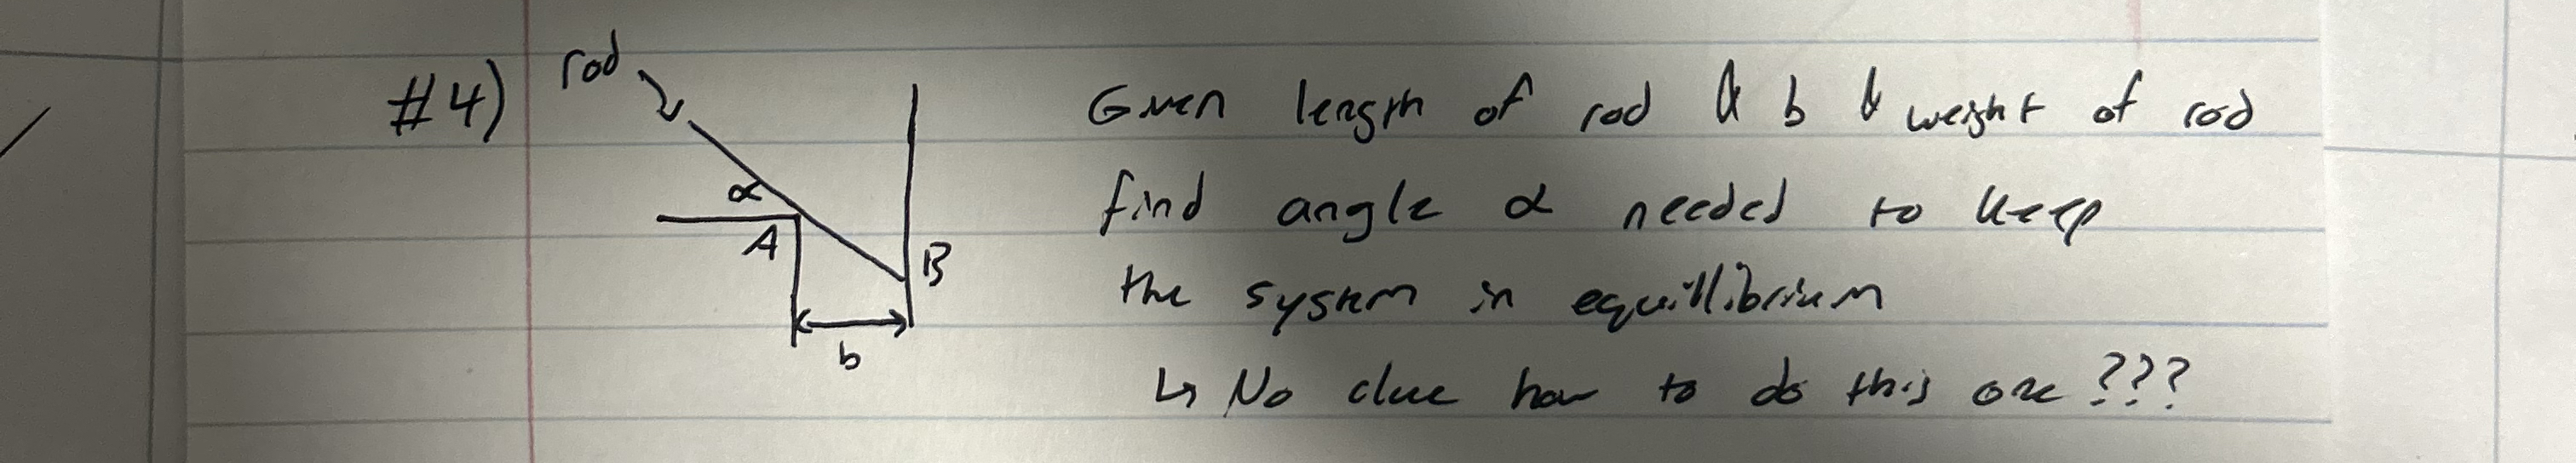 #4) rod Given length of rod & b & weight of rod
α find angle α needed to keep
A B the system in equillibrium
b ↳ No clue how to do this one ???